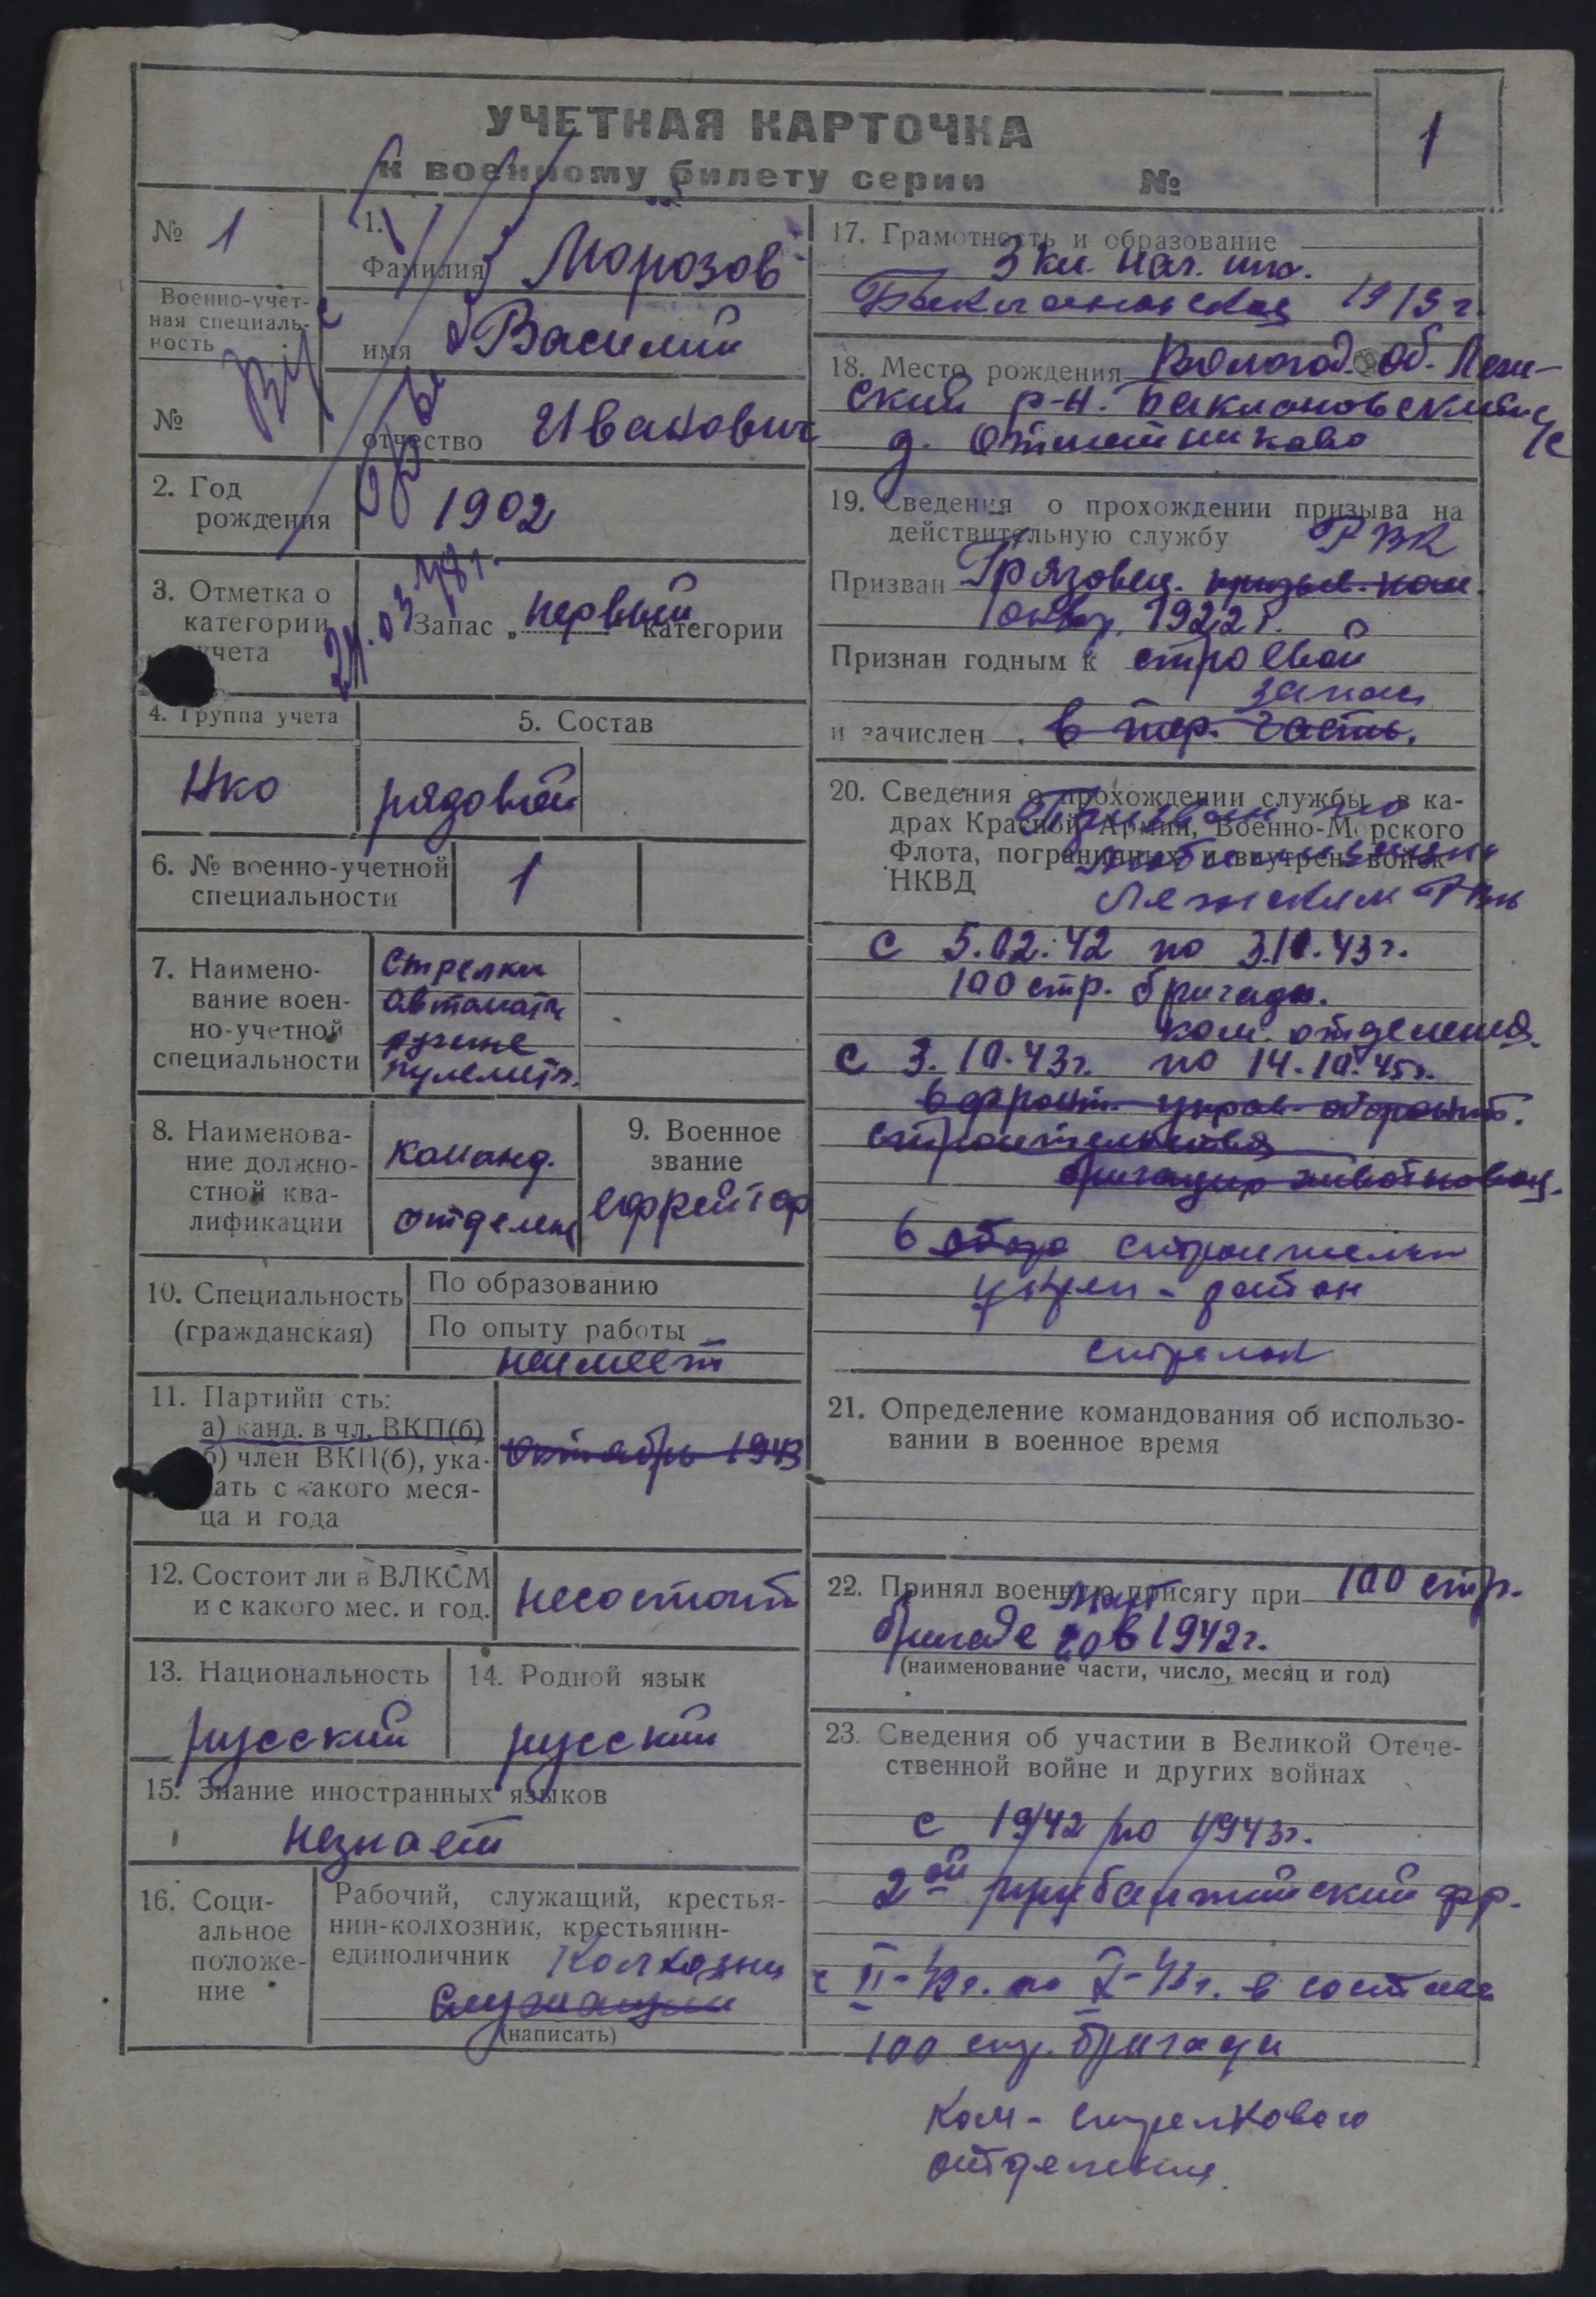 УЧЕТНАЯ КАРТОЧКА
к военному билету серии №
1
№ 1
Военно-учет-
ная специаль-
ность
№
1.
Фамилия Морозов
имя Василий
отчество Иванович
2. Год
рождения
1902
3. Отметка о
категории
учета
Запас „первый“ категории
4. Группа учета
5. Состав
нко
рядовой
6. № военно-учетной
специальности
1
7. Наимено-
вание воен-
но-учетной
специальности
Стрелки
автоматч
ручные
пулеметч.
8. Наименова-
ние должно-
стной ква-
лификации
команд.
отделен
9. Военное
звание
ефрейтор
10. Специальность
(гражданская)
По образованию
По опыту работы
неимеет
11. Партийн сть:
а) канд. в чл. ВКП(б)
б) член ВКП(б), ука-
ать с какого меся-
ца и года
октябрь 1943
12. Состоит ли в ВЛКСМ
и с какого мес. и год.
несостоит
13. Национальность
русский
14. Родной язык
русский
15. Знание иностранных языков
незнает
16. Соци-
альное
положе-
ние
Рабочий, служащий, крестья-
нин-колхозник, крестьянин-
единоличник Колхозни
Служащий
(написать)
17. Грамотность и образование
3 кл. нач. шко.
Баклановская 1915 г.
18. Место рождения Вологод. об. Леж-
ский р-н. Баклановский с/с
д.
19. Сведения о прохождении призыва на
действительную службу РВК
Призван Грязовец. призыв. ком.
1922 г.
Признан годным к строевой
запас
и зачислен в тер. часть.
20. Сведения о прохождении службы в ка-
драх Красной Армии, Военно-Морского
Флота, пограничных и внутрен. войск
НКВД
Призван по
мобилизации
Лежским РВК
с 5.02.42 по 3.10.43 г.
100 стр. бригады.
ком. отделения.
с 3.10.43 г. по 14.10.45 г.
в фронт. управ. оборонит.
строительства
бригадир животновод.
в строительн
укреп-район
стрелок
21. Определение командования об использо-
вании в военное время
22. Принял военную присягу при 100 стр.
бригаде в 1942 г.
(наименование части, число, месяц и год)
23. Сведения об участии в Великой Отече-
ственной войне и других войнах
с 1942 по 1943 г.
2ой прибалтийский фр.
с II-42 г. по X-43 г. в составе
100 стр. бригады
Ком-стрелкового
отделения.